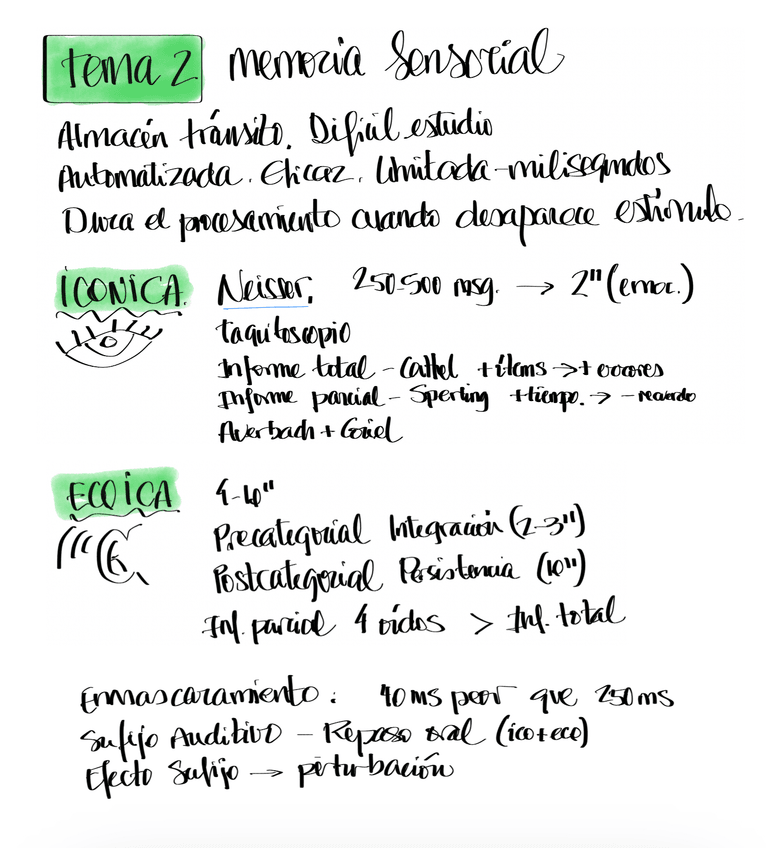 tema 2 memoria Sensorial
Almacén tránsito. Difícil estudio
Automatizada. Eficaz. Limitada-milisegundos
Dura el procesamiento cuando desaparece estímulo.
ICONICA. Neisser. 250-500 msg. → 2" (emoc.)
taquitoscopio
Informe total - Cattel + ítems → + errores
Informe parcial - Sperling + tiempo. → - recuerdo
Averbach + Coriel
ECOICA
Precategorial Integración (2-3")
Postcategorial Persistencia (10")
Inf. parcial 4 oídos > Inf. total
Enmascaramiento: 40 ms peor que 250 ms
Sufijo Auditivo - Repaso oral (ico+eco)
Efecto Sufijo → perturbación